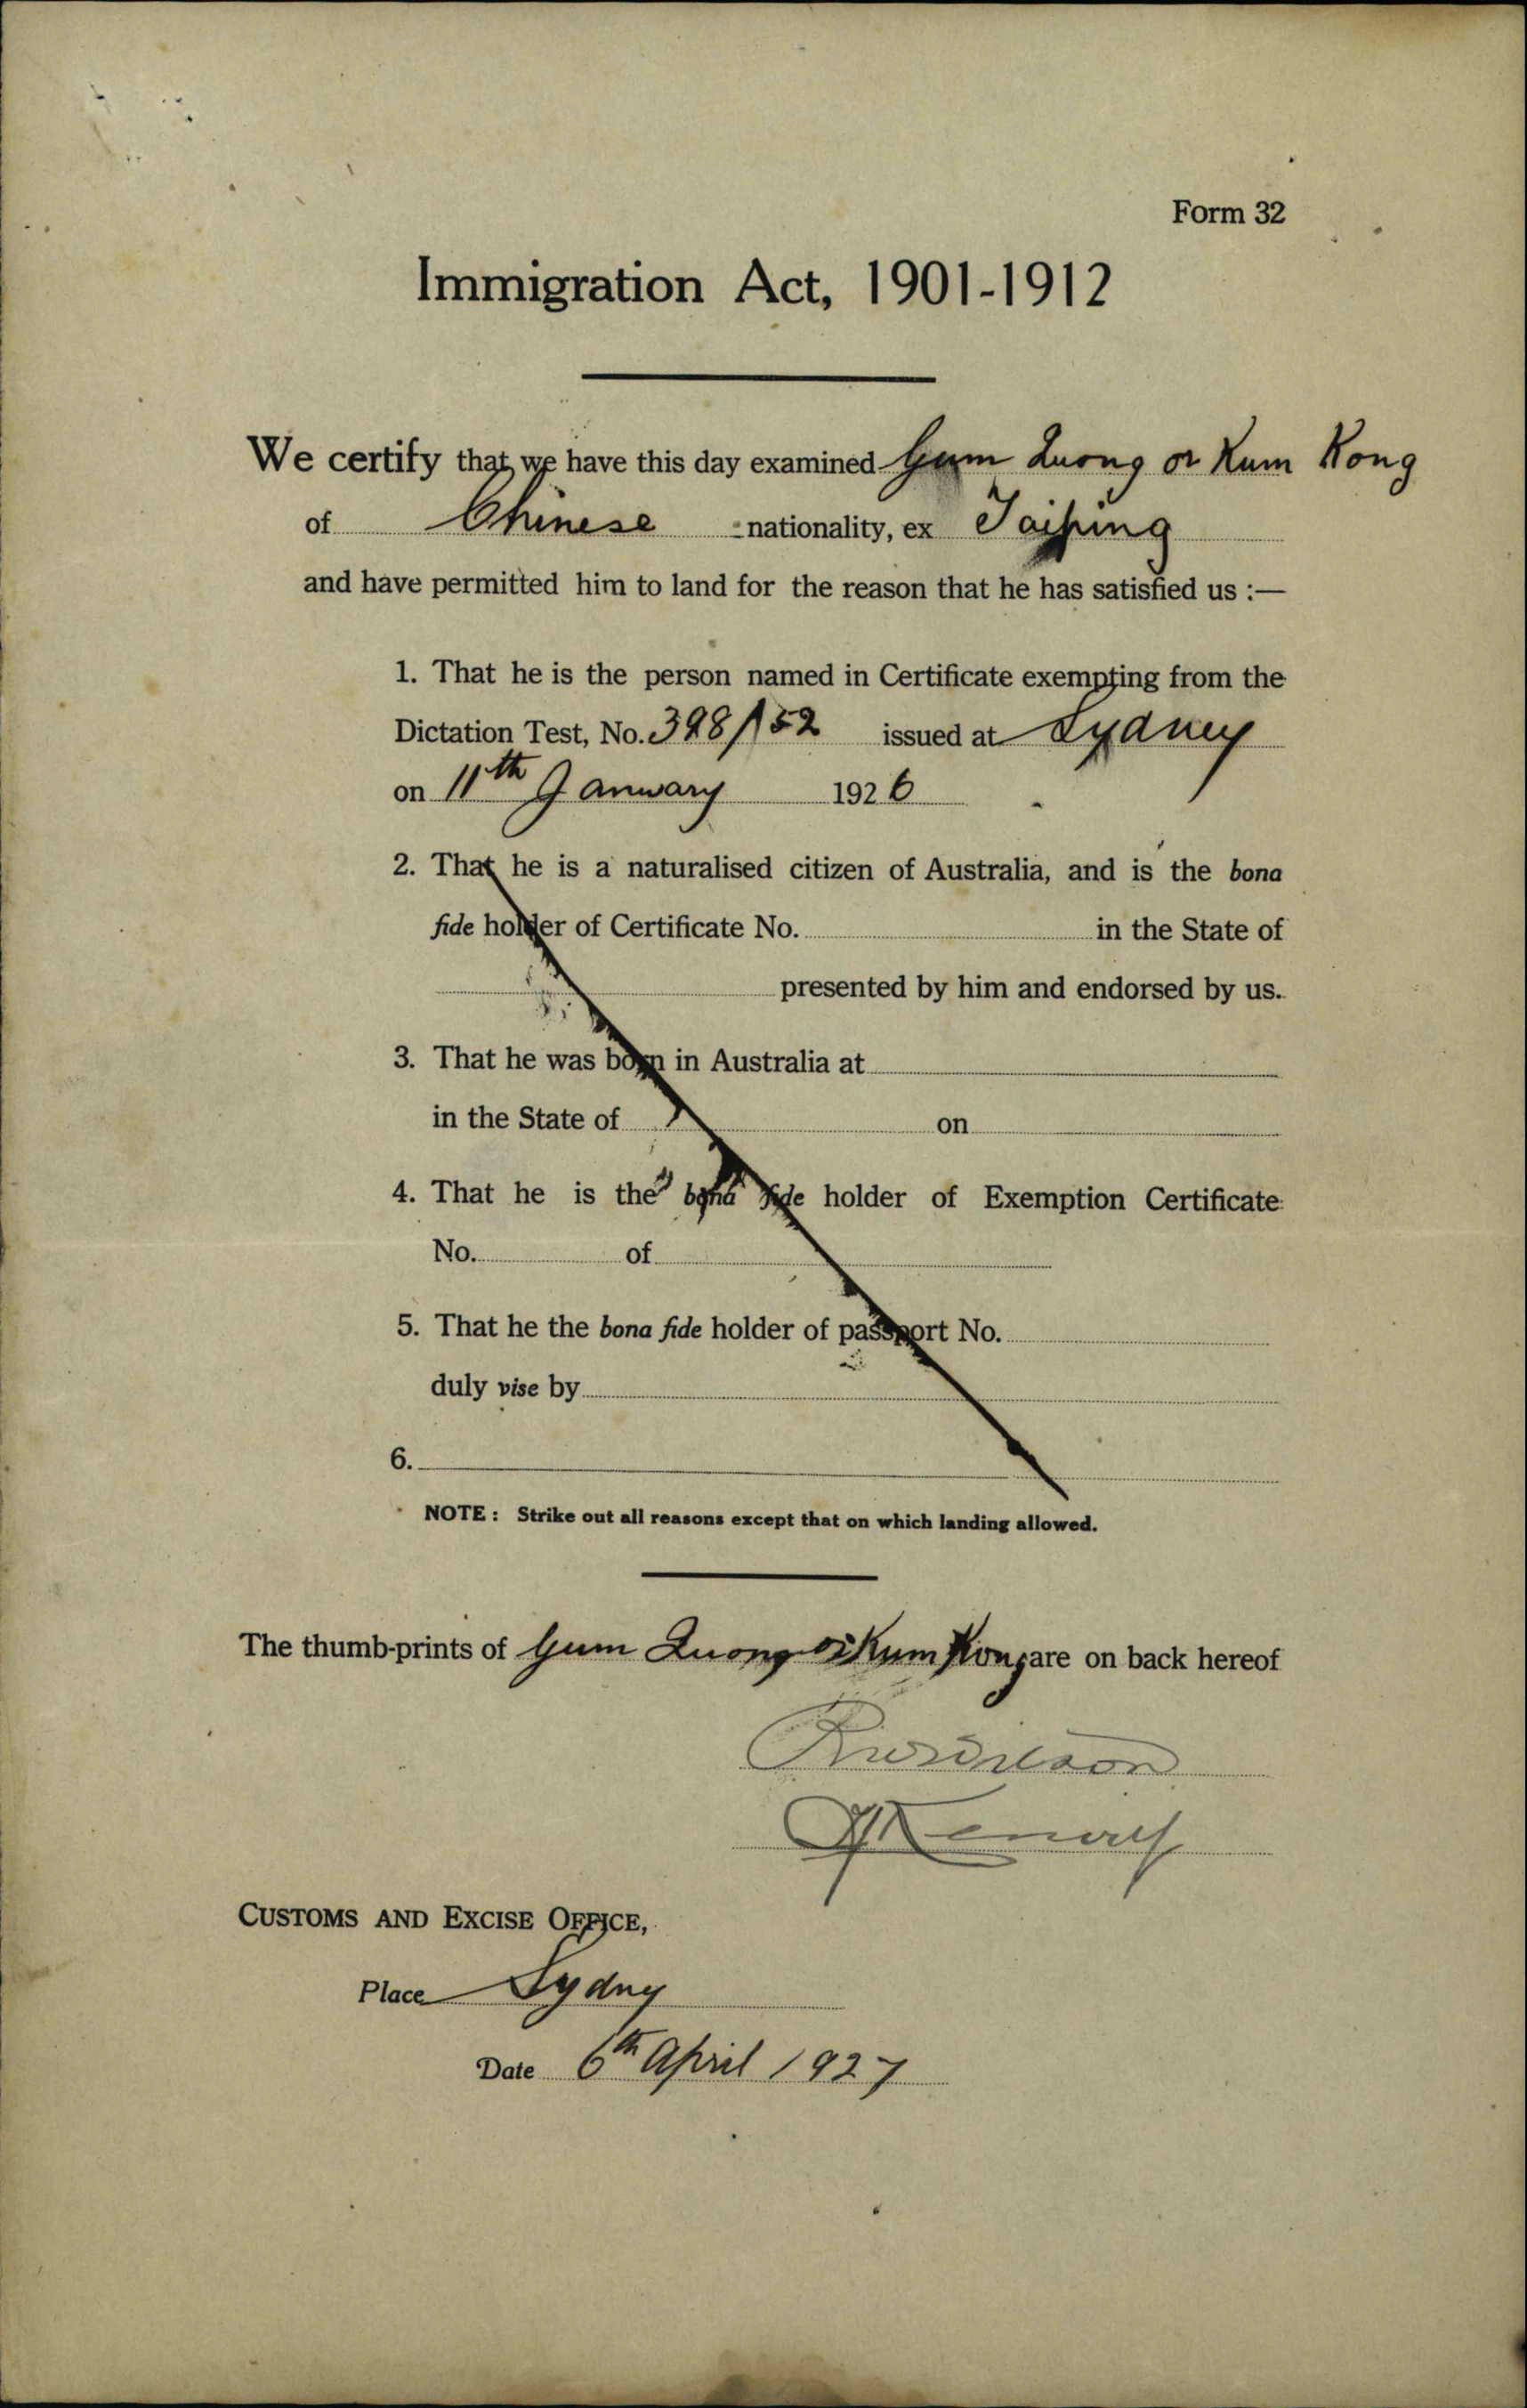 Form 32
Immigration Act, 1901-1912
We certify that we have this day examined Gum Quong or Kum Kong
of Chinese nationality, ex Taiping
and have permitted him to land for the reason that he has satisfied us :—
1. That he is the person named in Certificate exempting from the
Dictation Test, No. 398/152 issued at Sydney
on 11th January 1926
2. That he is a naturalised citizen of Australia, and is the bona
fide holder of Certificate No. in the State of
presented by him and endorsed by us.
3. That he was born in Australia at
in the State of on
4. That he is the bona fide holder of Exemption Certificate
No. of
5. That he the bona fide holder of passport No.
duly vise by
6.
NOTE : Strike out all reasons except that on which landing allowed.
The thumb-prints of Gum Quong or Kum Kong are on back hereof
CUSTOMS AND EXCISE OFFICE,
Place Sydney
Date 6th April 1927